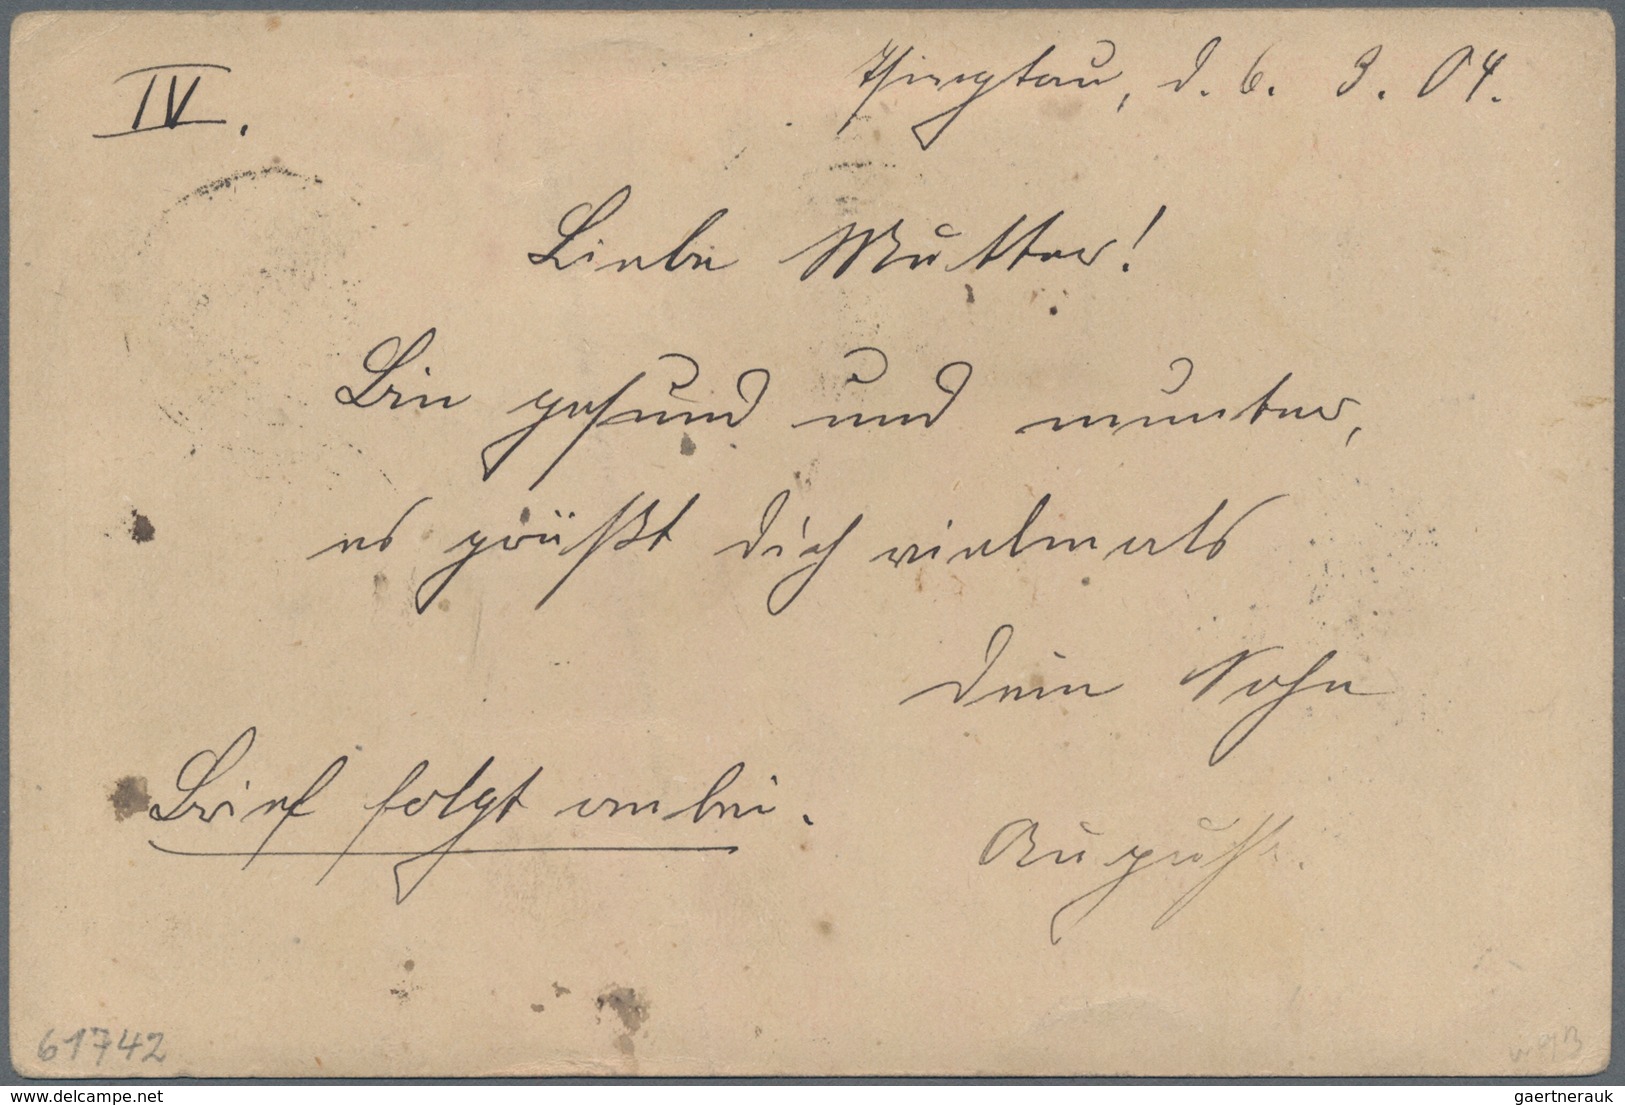 IV.
Tsingtau, d. 6. 3. 04.
Liebe Mutter!
Bin gesund und munter,
es grüßt Dich vielmals
Dein Sohn
August.
Brief folgt anbei.
61742
www.delcampe.net
gaertnerauk